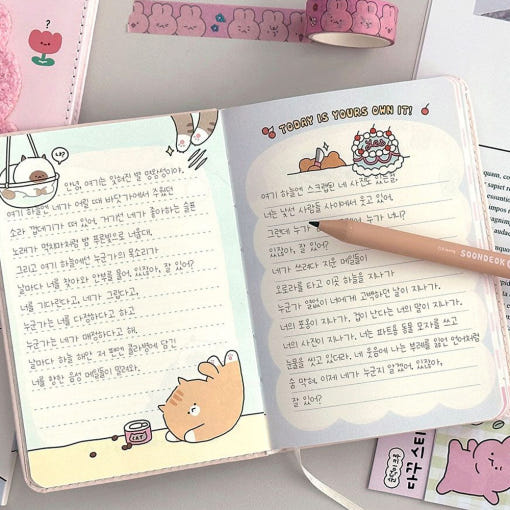 나?
안녕, 여기는 잊혀진 별 명왕성이야.
여기 하늘엔 네가 어릴 때 바닷가에서 주웠던
소라 껍데기가 떠 있어. 거기선 네가 좋아하는 슬픈
노래가 먹치마처럼 밤 푸른빛으로 너울대.
그리고 여기 하늘에선 누군가의 목소리가
날마다 너를 찾아와 안부를 물어. 있잖아, 잘 있어?
너를 기다린다고, 네가 그립다고,
누군가는 너를 다정하다고 하고
누군가는 네가 매정하다고 해.
날마다 하늘 해안 저 편엔 콜라병에 담긴
너를 향한 음성 메일들이 밀려와.
CAT
TODAY IS YOURS OWN IT!
여기 하늘엔 스크랩된 네 사진도 있는걸.
너는 낯선 사람들 사이에서 웃고 있어.
그런데 누가 너니?
있잖아, 잘 있어?
네가 쓰레기 지운 메일들이
오로라를 타고 이곳 하늘을 지나가.
누군가 열없이 너에게 고백하던 날이 지나가.
너의 포옹이 지나가. 겁이 난다는 너의 말이 지나가.
너의 사진이 지나가. 너는 파티용 동물 모자를 쓰고
눈물을 씻고 있더라. 네 웃음에 나는 부레를 잃은 인어처럼
숨 막혀. 이제 네가 누군지 알겠어. 있잖아,
잘 있어?
SOONDEOK
다꾸 스티